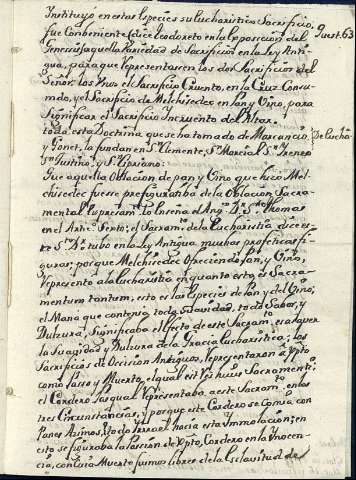 Instituyó en estas Especies su Eucharistico Sacrificio,
fue Conbeniente (dice teodoreto en la Exposicion del
Genesis) aquella Variedad de Sacrificios en la Ley Anti-
gua, para que Representasen los dos Sacrificios del
Señor. los Unos el Sacrificio Cruento, en la Cruz Consu-
mado, y el Sacrificio de Melchisedec en Pan y Vino, para
Significar el Sacrificio Incruento del Altar.
toda esta Doctrina que se ha tomado de Marcancio
y Gonet, la fundan en Sn. Clemente, Sn. Marcial Sn. Ireneo
Sn. Justino, y Sn. Cipriano:
Que aquella Oblacion de pan y Vino que hizo Mel-
chisedec fuesse prefigurativa de la Oblación Sacra-
mental Expresam.te lo enseña el Ang.co D.r S.to thomas
en el Artic. Sexto; el Sacram.to de la Eucharistia dice es-
te S.to D.r tubo en la Ley Antigua muchas profeticas fi-
guras; porque Melchisedec Ofreciendo Pan, y Vino,
Represento a la Eucharistia en quanto esto es Sacra-
mentum tantum, esto es las Especies de Pan y del Vino;
el Mana que contenia toda Suavidad, todo Sabor, y
Dulzura, Significaba el Efecto de este Sacram.to es a saver
la Suavidad y Dulzura de la Gracia Eucharistica; los
Sacrificios de Occision Antiguos, Representaron a Xpto
como Passo y Muerto, el qual es el Res huius Sacramenti;
el Cordero Pasqual Representaba, a este Sacram.to en las
tres Circunstancias, y porque este Cordero se Comia con
Panes Azimos, y todo Ysrrael hacia esta Immolacion; en
esto se figuraba la Passion de Xpto, Cordero en la Ynocen-
cia, con Cuia Muerte fuimos libres de la Esclavitud de
Quest. 63
De Euchä-